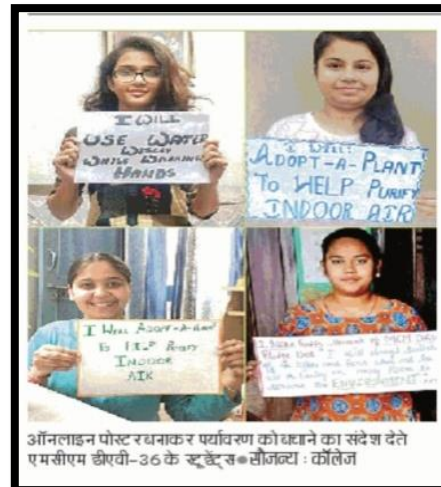 I WILL
USE WATER
WISELY
WHILE WASHING
HANDS
I WILL
ADOPT-A-PLANT
TO HELP PURIFY
INDOOR AIR
I WILL ADOPT-A-PLANT
TO HELP PURIFY
INDOOR
AIR
ENVIRONMENT
ऑनलाइन पोस्टर बनाकर पर्यावरण को बचाने का संदेश देते
एमसीएम डीएवी-36 के स्टूडेंट्स ● सौजन्य : कॉलेज